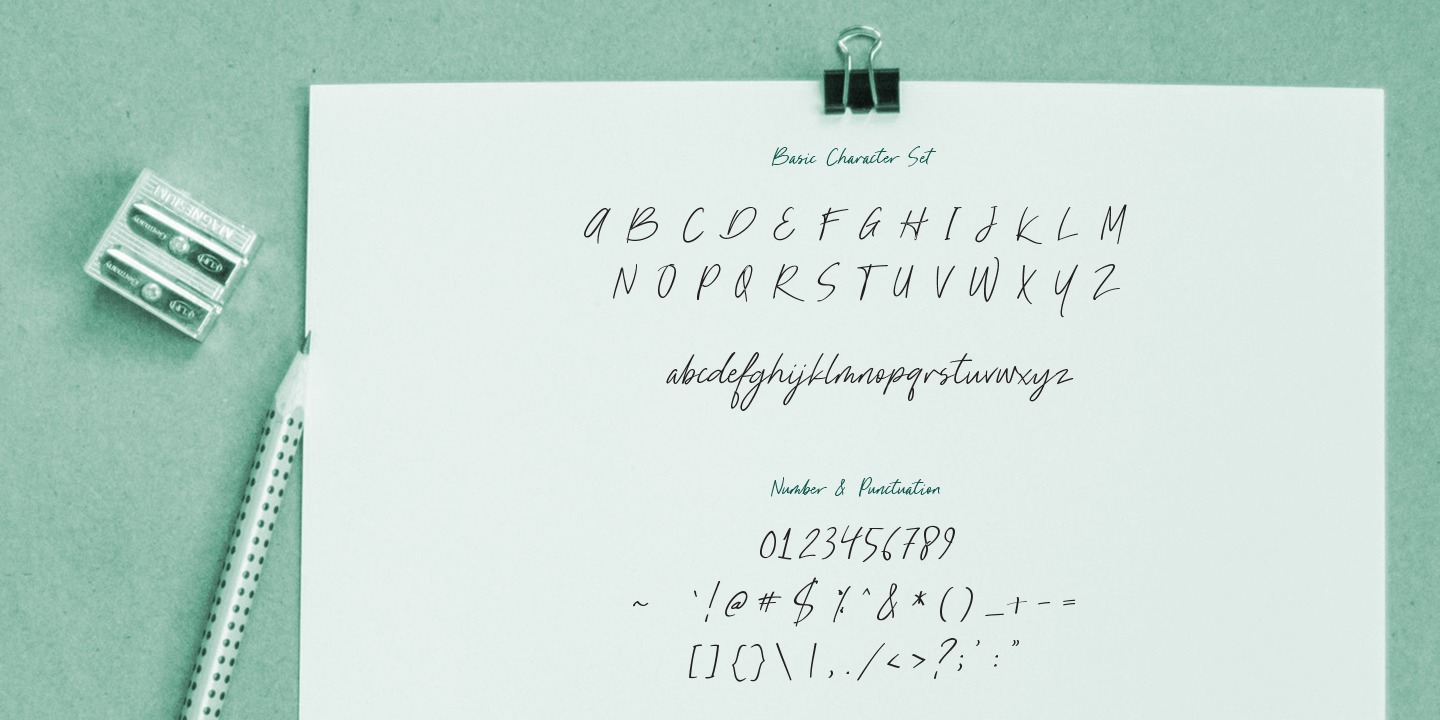 Basic Character Set
A B C D E F G H I J K L M
N O P Q R S T U V W X Y Z
abcdefghijklmnopqrstuvwxyz
Number & Punctuation
0123456789
~ `!@#$%^&*()_+-=
[]{}\|,./<>?;':"
MAGNESIUM
Germany
Germany